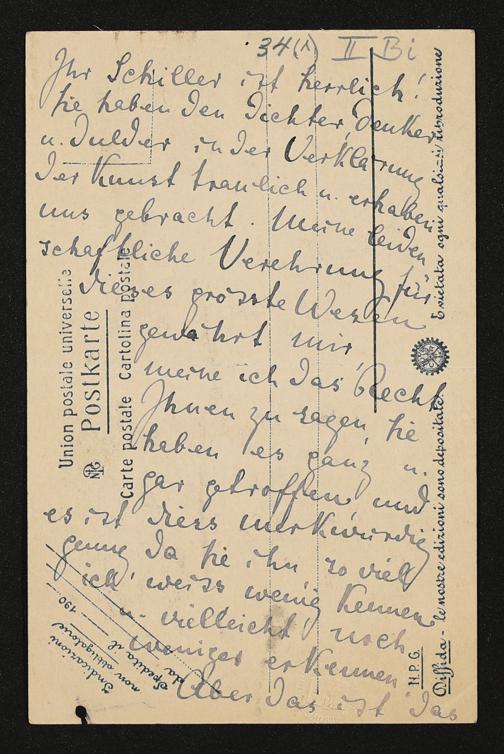 34(1) II Bi
Ihr Schiller ist herrlich!
Sie haben den Dichter, Denker
u. Dulder in der Verklärung
der Kunst traulich u. erhaben
uns gebracht. Meine leiden
schaftliche Verehrung für
dieses grösste Wesen
gewährt mir
meine ich das Recht
Ihnen zu sagen, Sie
haben es ganz u.
gar getroffen, und
es ist diess merkwürdig
genug da Sie ihn so viel
ich weiss wenig kennen
u. vielleicht noch
weniger erkennen
Aber das ist das
Union postale universelle
Postkarte
Carte postale Cartolina postale
N.P.G.
Diffida - le nostre edizioni sono depositate.
È vietata ogni qualsiasi riproduzione
Indicazioni
non obbligatorie
Spedita il
da
190